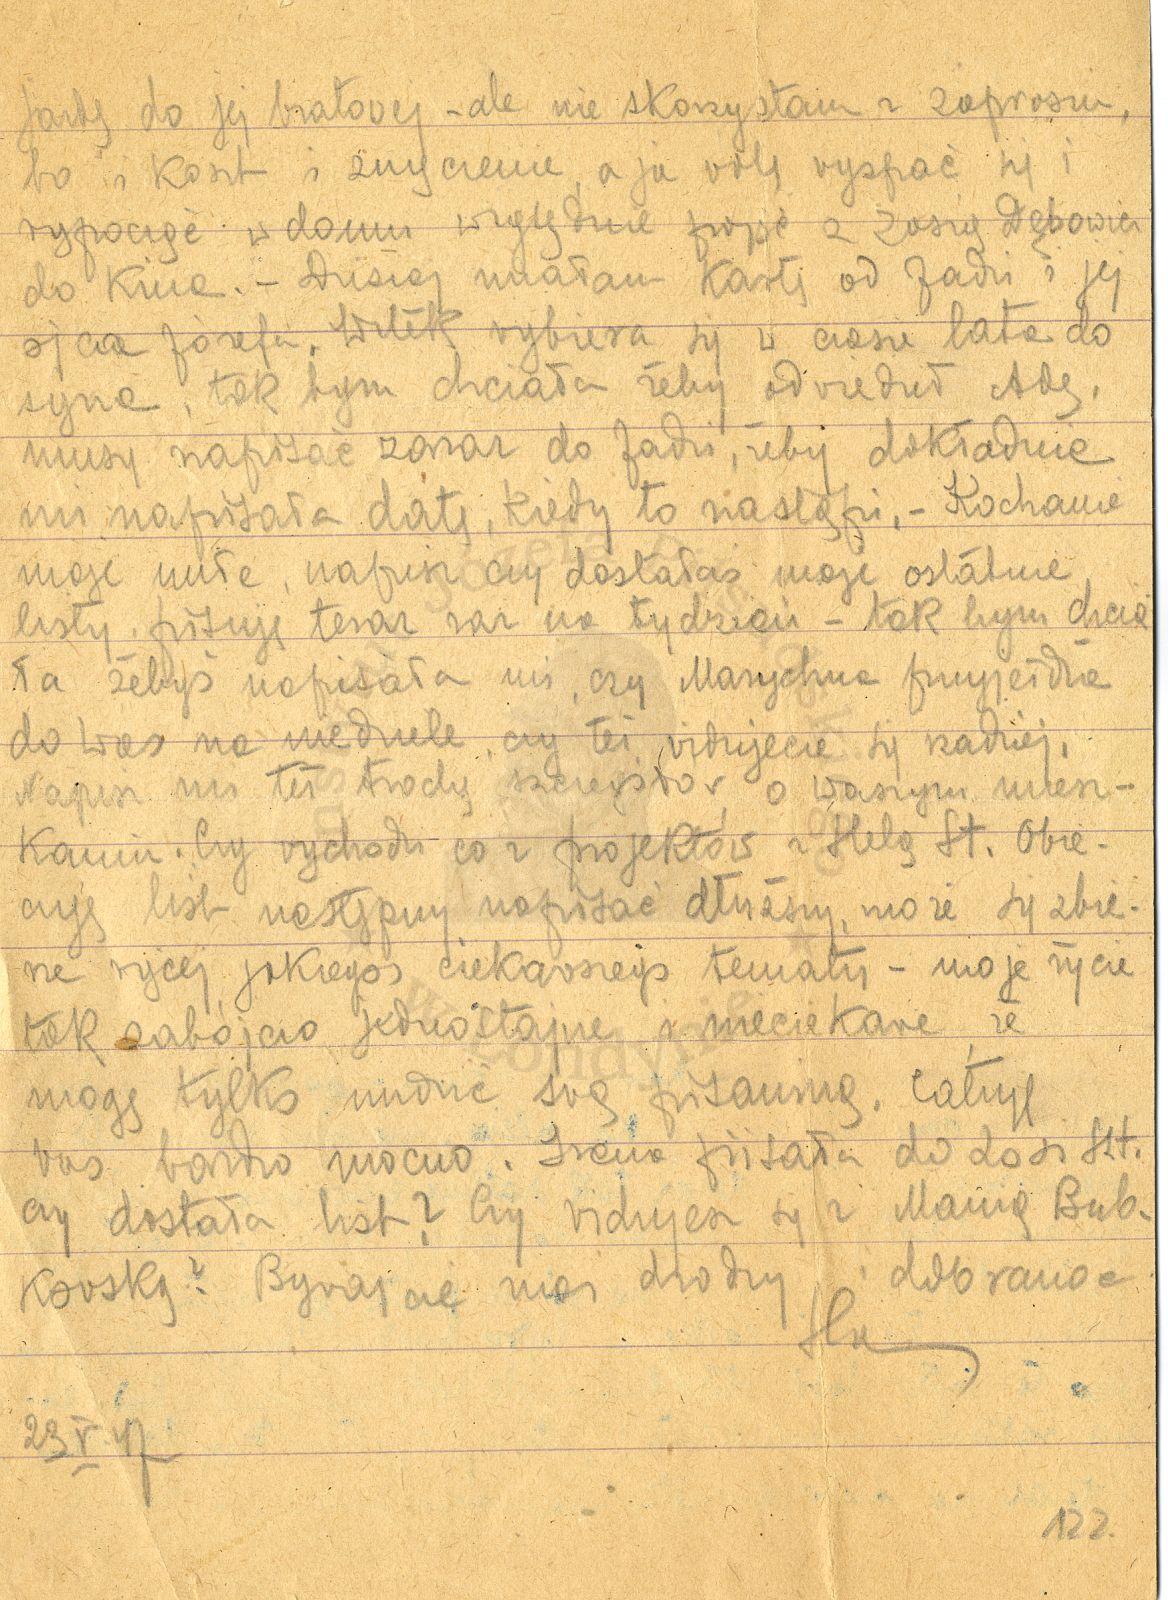 jazdę do jej bratowej - ale nie skorzystam z zaprosin,
bo i koszt i zmęczenie, a ja wolę wyspać się i
wypocząć w domu względnie pójść z Zosią Dębowicz
do kina. - Dzisiaj miałam kartę od Jadzi i jej
ojca Józefa. Witek wybiera się w czasie lata do
syna, tak bym chciała żeby odwiedził Adę,
muszę napisać zaraz do Jadzi, żeby dokładnie
mi napisała datę, kiedy to nastąpi. - Kochanie
moje miłe, napisz czy dostałaś moje ostatnie
listy, pisuję teraz raz na tydzień - tak bym chcia
ła żebyś napisała mi, czy Marychna przyjeżdża
do Was na niedziele, czy też widujecie się rzadziej.
Napisz mi też trochę szczegółów o waszym miesz-
kaniu. Czy wychodzi co z projektów z Helą St. Obie-
cuję list następny napisać dłuższy, może się zbie-
rze więcej jakiegoś ciekawszego tematu - moje życie
tak zabójczo jednostajne i nieciekawe, że
mogę tylko nudzić swą pisaniną. Całuję
was bardzo mocno. Irena pisała do Zosi St.
czy dostała list? Czy widujesz się z Manią Bub-
kowską? Bywajcie moi drodzy i dobranoc
23 V 47
122.